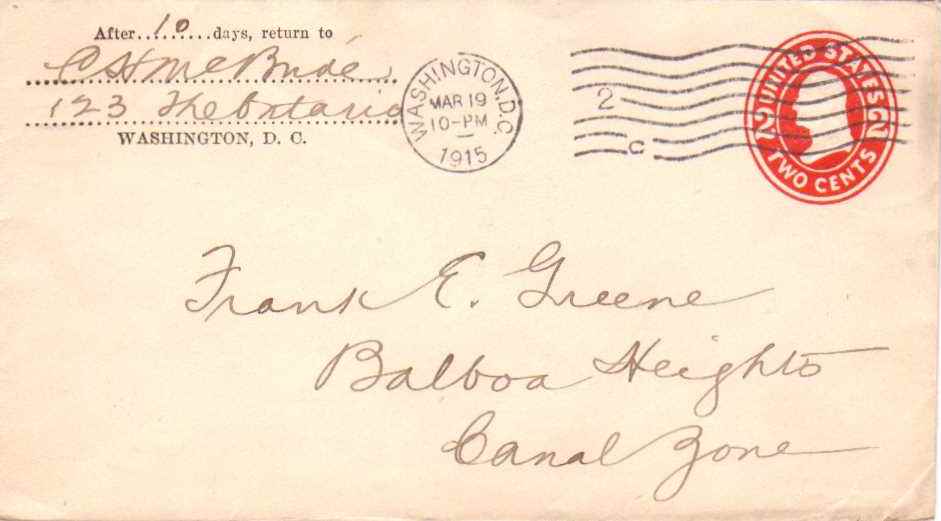 After..10....days, return to
C H McBride
123 The Ontario
WASHINGTON, D. C.
WASHINGTON, D.C.
MAR 19
10-PM
1915
2
C
UNITED STATES
2 2
TWO CENTS
Frank E. Greene
Balboa Heights
Canal Zone